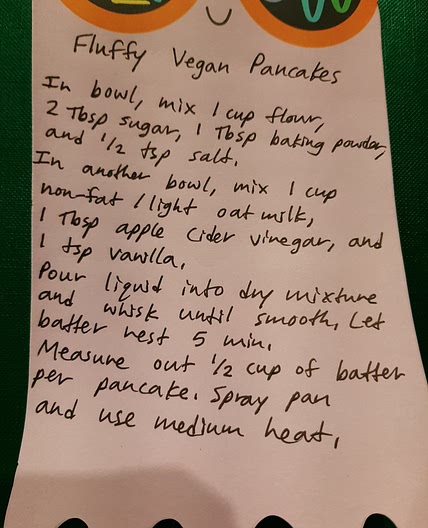 Fluffy Vegan Pancakes
In bowl, mix 1 cup flour,
2 Tbsp sugar, 1 Tbsp baking powder,
and 1/2 tsp salt.
In another bowl, mix 1 cup
non-fat / light oat milk,
1 Tbsp apple cider vinegar, and
1 tsp vanilla.
Pour liquid into dry mixture
and whisk until smooth. Let
batter rest 5 min.
Measure out 1/2 cup of batter
per pancake. Spray pan
and use medium heat.